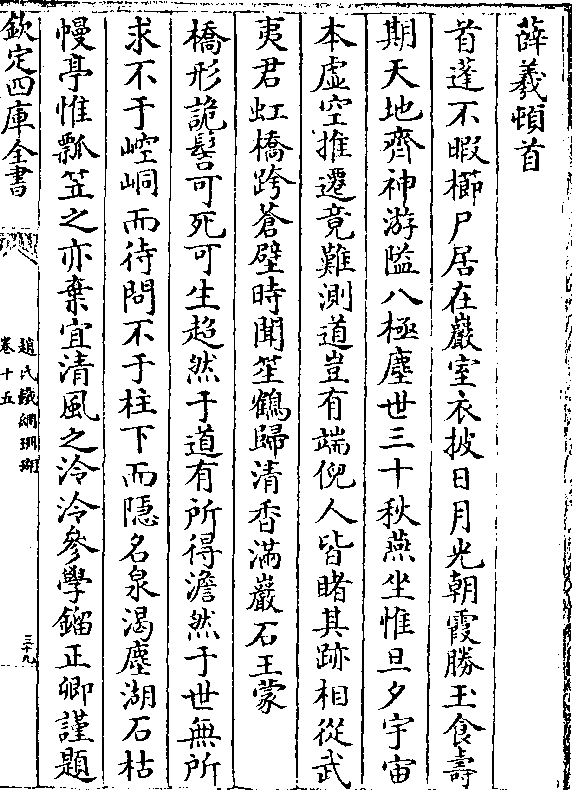 薛羲頓首
首蓬不暇櫛尸居在巖室衣披日月光朝霞勝玉食壽
期天地齊神游隘八極塵世三十秋燕坐惟旦夕宇宙
本虛空推遷竟難測道豈有端倪人皆睹其跡相從武
夷君虹橋跨蒼壁時聞笙鶴歸清香滿巖石王蒙
橋形詭髻可死可生超然于道有所得澹然于世無所
求不于崆峒而待問不于柱下而隱名泉渴塵湖石枯
幔亭惟瓢笠之亦棄宜清風之泠泠參學鎦正卿謹題
欽定四庫全書
趙氏鐵網珊瑚
卷十五
三十九